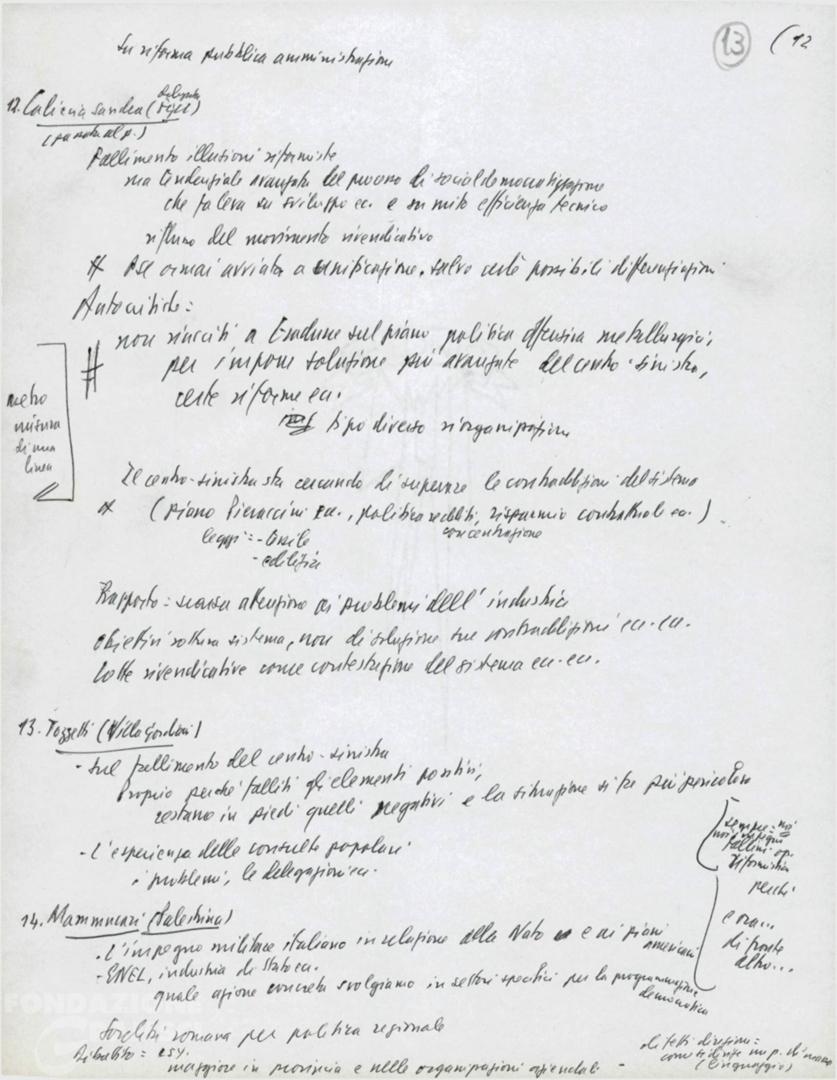 13 (12
Su riforma pubblica amministrazione
12. Calienia Sandra (delegata
(passata al p.)
Fallimento illusioni riformiste
ma tendenziale avanzata del processo di socialdemocratizzazione
che fa leva su sviluppo ec. e su mito efficienza tecnico
riflusso del movimento rivendicativo
# PSU ormai avviata a unificazione, salvo certe possibili differenziazioni
Autocritiche:
non riusciti a tradurre sul piano politico offensiva metallurgici,
# per imporre soluzione più avanzate del centro-sinistra,
certe riforme ec.
tipo diverso riorganizzazione
metro
misura
di una
linea
Il centro-sinistra sta cercando di superare le contraddizioni del sistema
(piano Pieraccini ec., politica redditi, risparmio contrattuale ec.)
leggi: - tessile concentrazione
- edilizia
Rapporto: scarsa attenzione ai problemi dell'industria
obiettivi rottura sistema, non di soluzione sue contraddizioni ec. ec.
Lotte rivendicative come contestazione del sistema ec. ec.
13. Tozzetti (Villa Gordiani)
- Sul fallimento del centro-sinistra
proprio perché falliti gli elementi positivi,
restano in piedi quelli negativi e la situazione si fa più pericolosa
- L'esperienza delle consulte popolari
i problemi, le delegazioni ec.
sempre: noi
fallim. op.
riformista
perché
e ora...
di fronte
altro...
14. Mammucari (Palestrina)
- L'impegno militare italiano in relazione alla Nato e ai piani americani
- ENEL, industria di Stato ec.
quale azione concreta svolgiamo in settori specifici per la programmazione democratica
Sordità romana per politica regionale
Dibattito: es.
maggiore in provincia e nelle organizzazioni aziendali -
difetti direzione:
(linguaggio)
FONDAZIONE